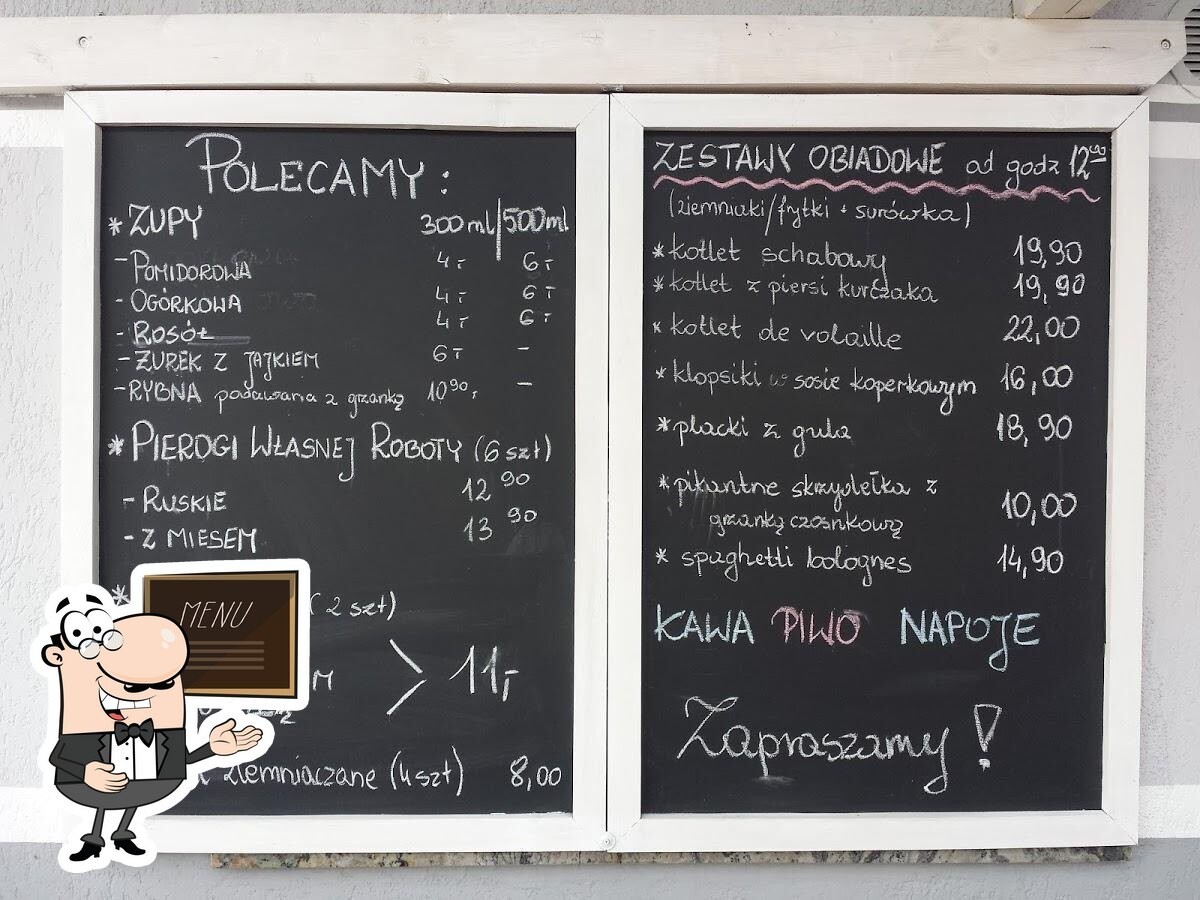 POLECAMY:
* ZUPY 300ml/500ml
- POMIDOROWA 4,- 6,-
- OGÓRKOWA 4,- 6,-
- ROSÓŁ 4,- 6,-
- ŻUREK Z JAJKIEM 6,- -
- RYBNA podawana z grzanką 10 90,- -
* PIEROGI WŁASNEJ ROBOTY (6 szt)
- RUSKIE 12 90
- Z MIESEM 13 90
* (2 szt)
> 11,-
ziemniaczane (4szt) 8,00
MENU
ZESTAWY OBIADOWE od godz 12 00
(ziemniaki/frytki + surówka)
* kotlet schabowy 19,90
* kotlet z piersi kurczaka 19,90
* kotlet de volaille 22,00
* klopsiki w sosie koperkowym 16,00
* placki z gula 18,90
* pikantne skrzydełka z
grzanką czosnkową 10,00
* spaghetti bolognes 14,90
KAWA PIWO NAPOJE
Zapraszamy!